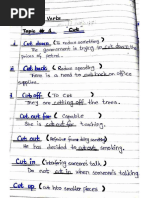 Verbs
Topic # 1 Cut
1. Cut down (To reduce something)
The government is trying to cut down the
prices of
2. Cut back (Reduce spending)
There is a need to cut back on office
supplies.
3. Cut off (To Cut)
They are cutting off the trees.
4. Cut out for (Capable)
She is cut out for teaching.
5. Cut out (something)
He has decided to cut out smoking.
Cut in (Interfering someone's talk)
Do not cut in when someone's talking
Cut up (cut into smaller pieces)